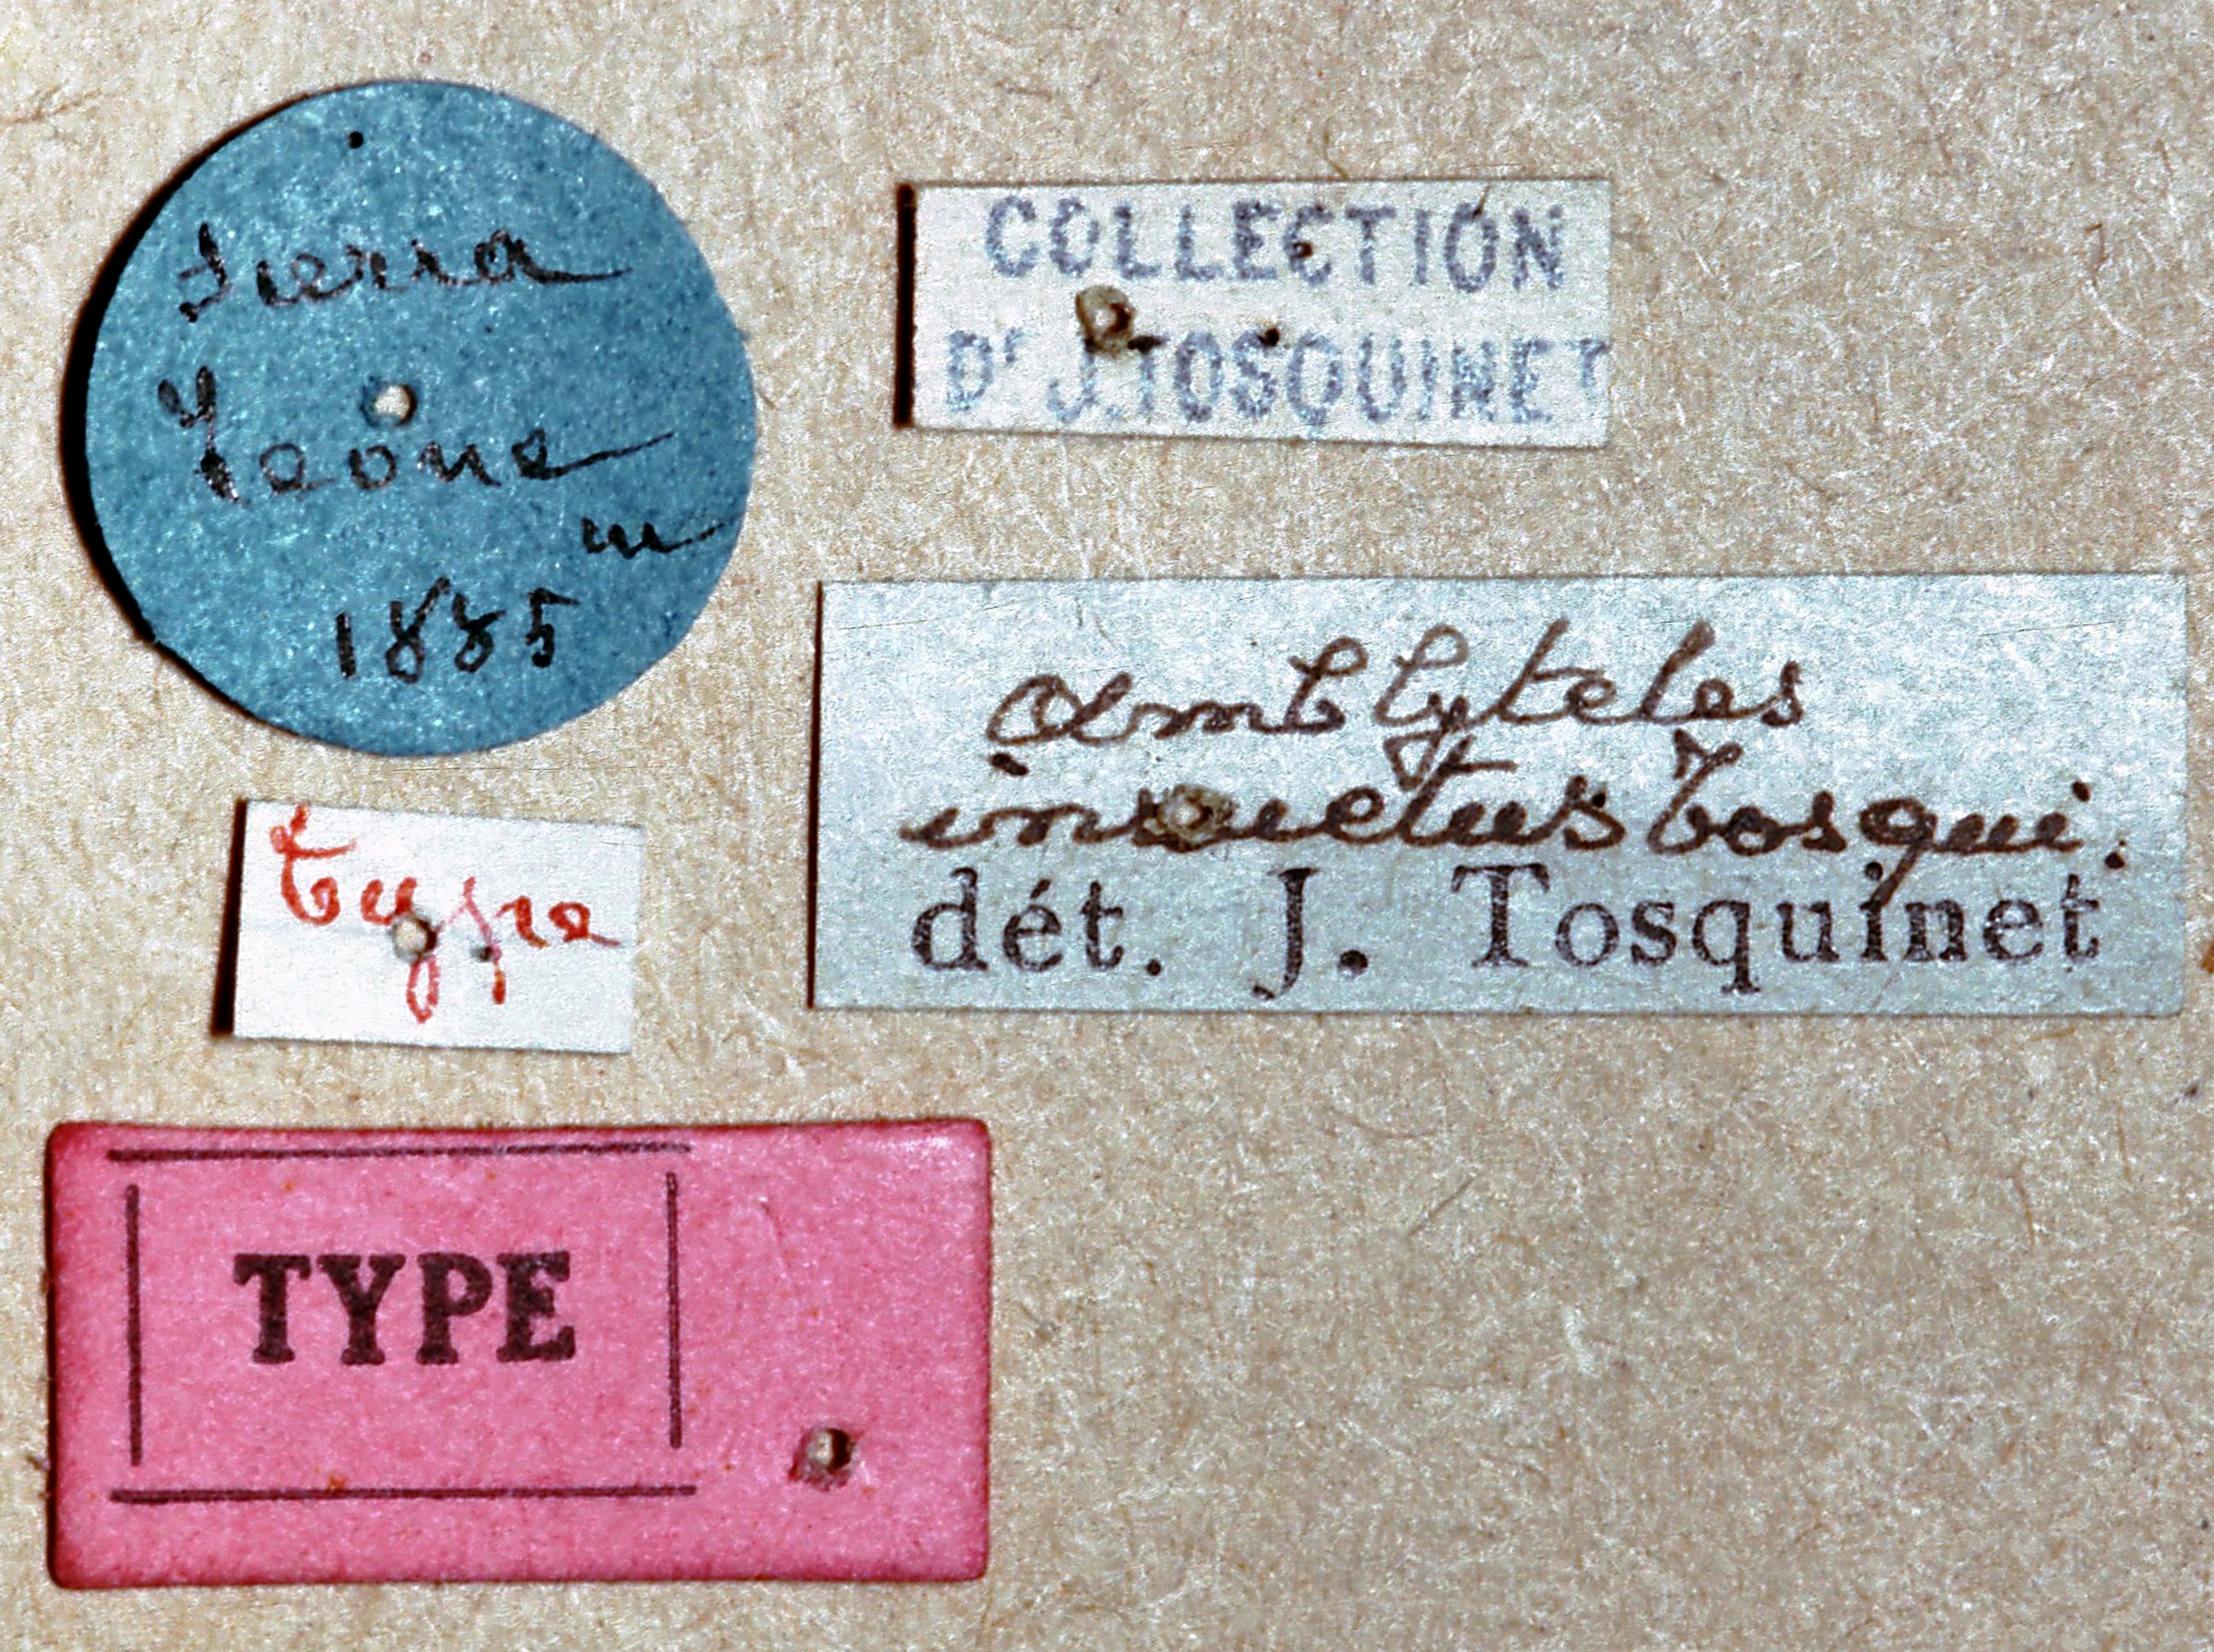 Sierra
Leone
m
1885
COLLECTION
Dr J. TOSQUINET
Amblyteles
insuetus Tosqui.
dét. J. Tosquinet
type
TYPE